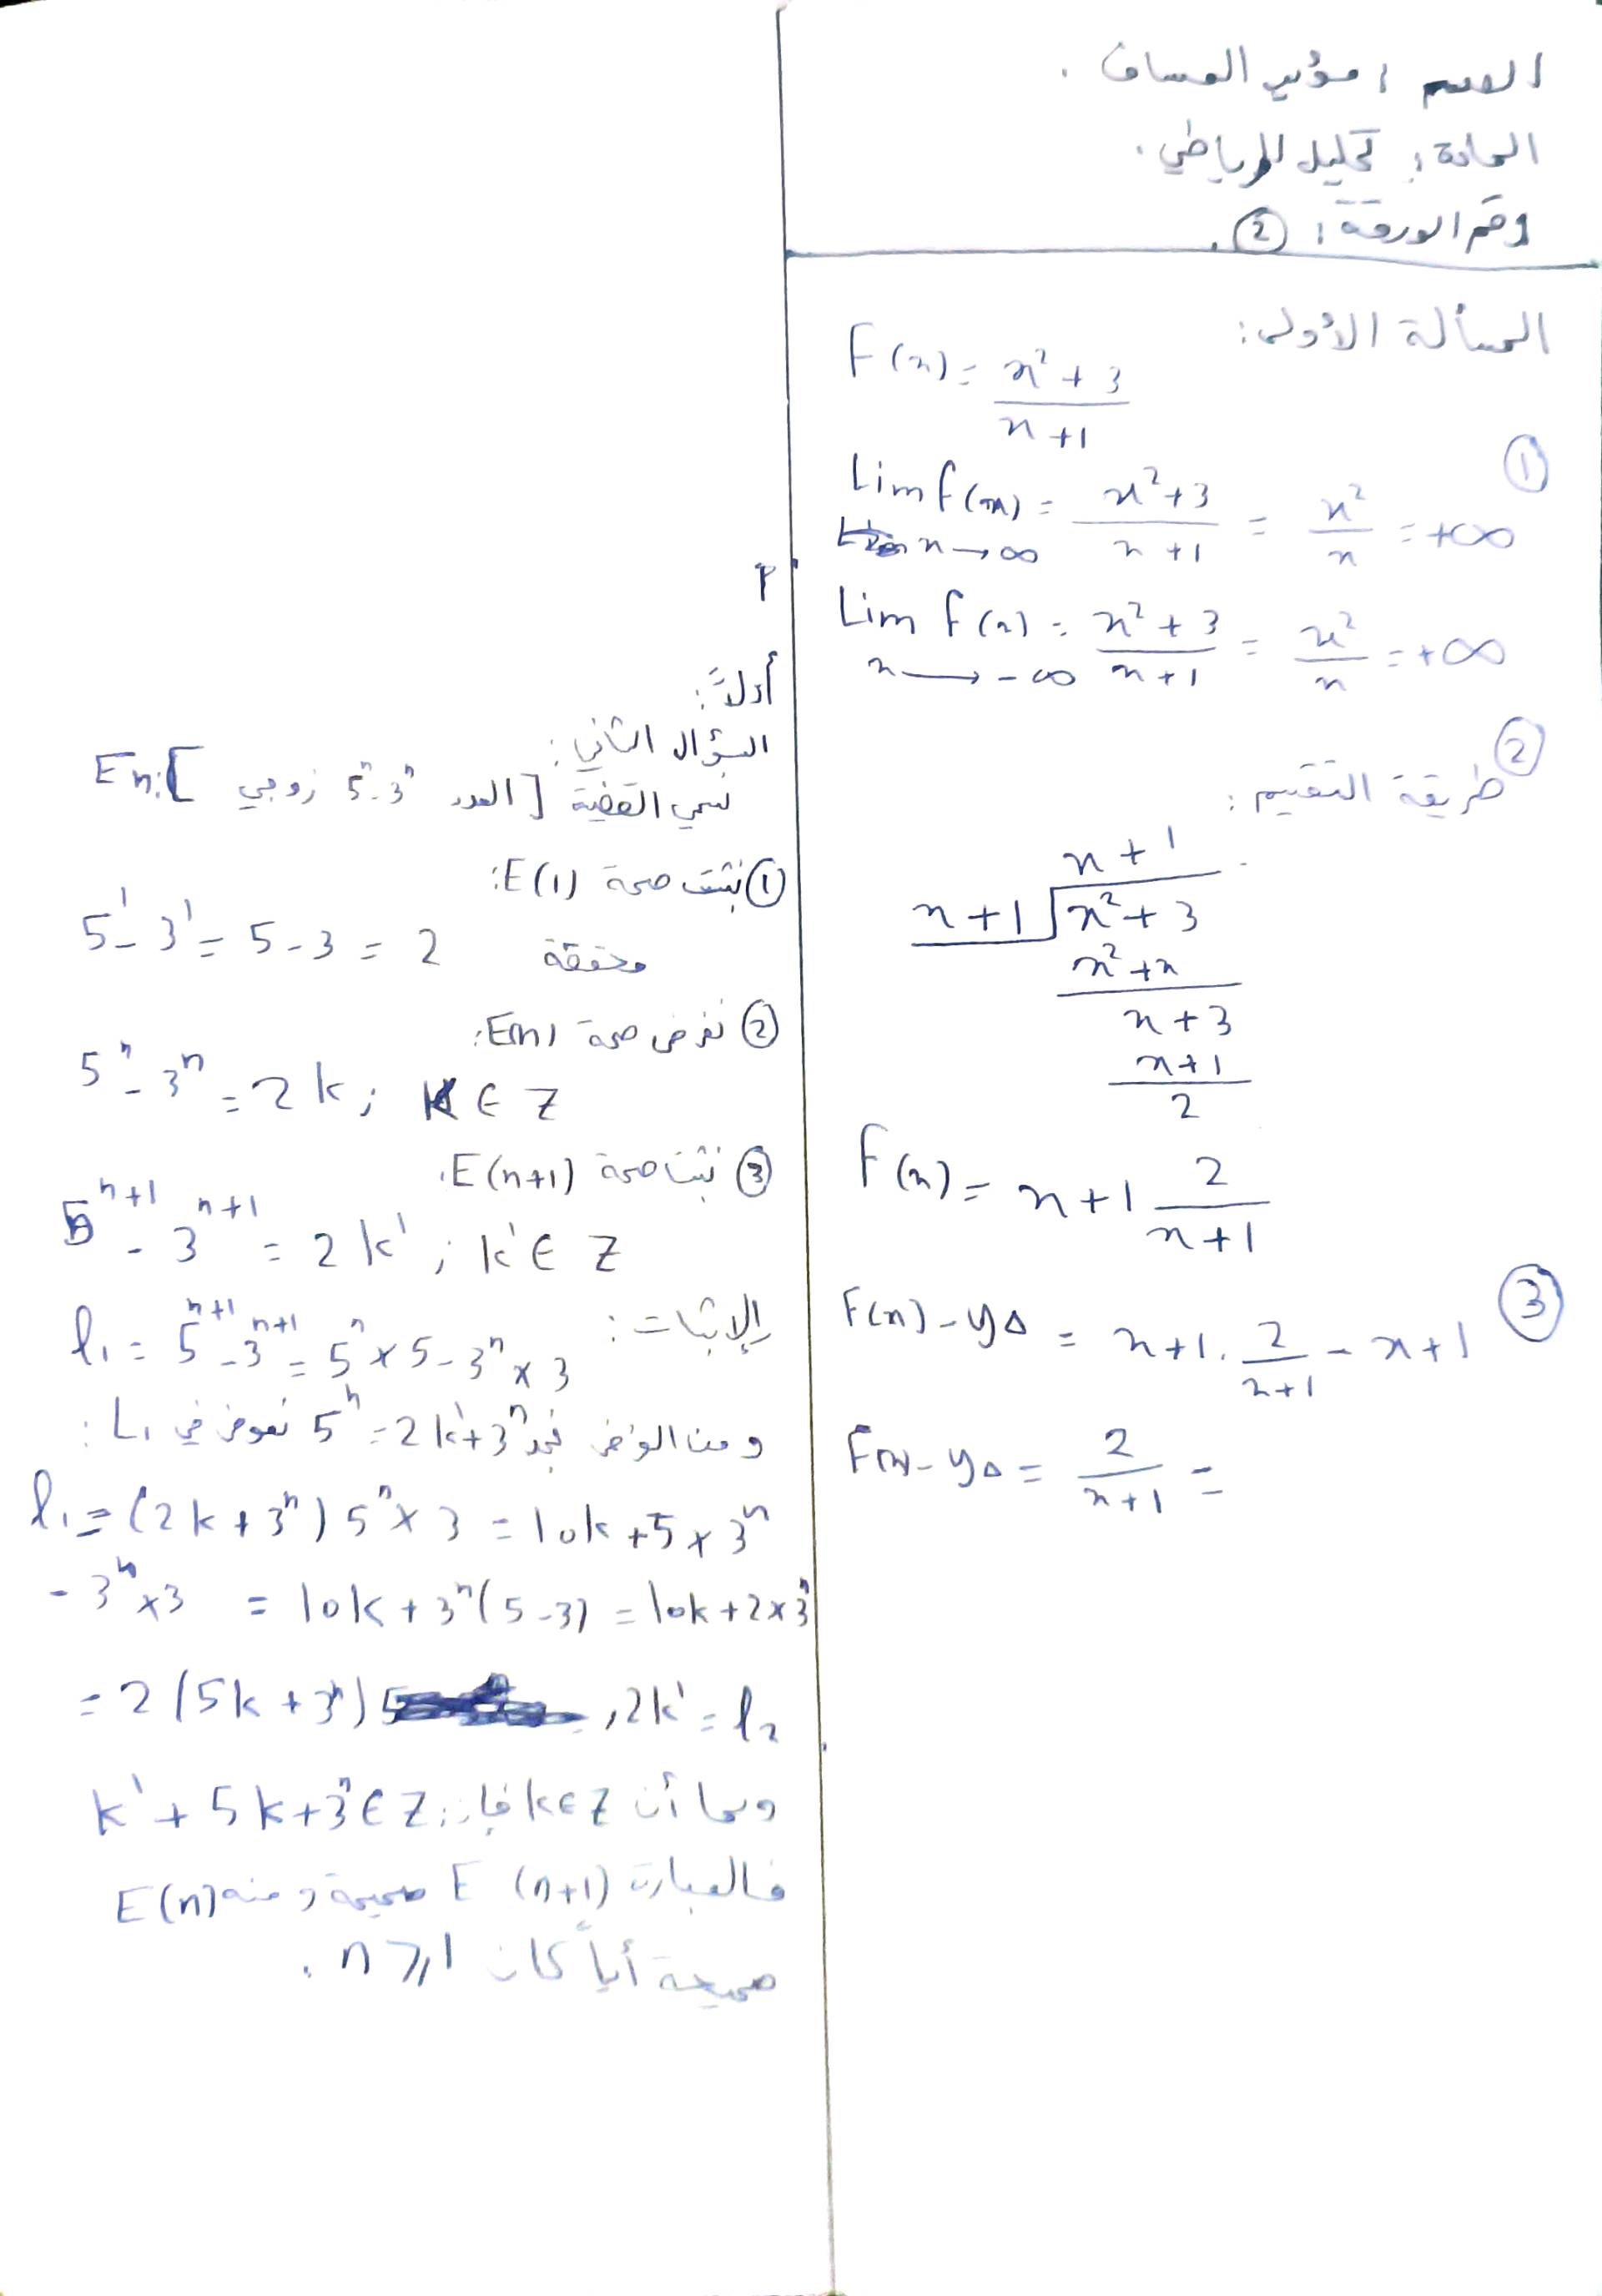 الاسم : مؤيد العساف .
المادة : تحليل الرياضي .
رقم الورقة : ②.
المسألة الأولى :
F(x) = x² + 3 / x + 1
①
Lim f(x) = x² + 3 / x + 1 = x² / x = +∞
x → ∞
Lim f(x) = x² + 3 / x + 1 = x² / x = +∞
x → -∞
②
طريقة التقسيم :
x + 1
x + 1 x² + 3
x² + x
x + 3
x + 1
2
F(x) = x + 1 2 / x + 1
③
F(x) - y∆ = x + 1 . 2 / x + 1 - x + 1
F(x) - y∆ = 2 / x + 1 =
أولاً :
السؤال الثاني :
نسمي القضية [العدد 5ⁿ-3ⁿ زوجي] En:
① نثبت صحة E(1):
5¹ - 3¹ = 5 - 3 = 2 محققة
② نفرض صحة E(n):
5ⁿ - 3ⁿ = 2k ; k ∈ Z
③ نثبت صحة E(n+1).
5ⁿ⁺¹ - 3ⁿ⁺¹ = 2k' ; k' ∈ Z
الإثبات :
l₁ = 5ⁿ⁺¹ - 3ⁿ⁺¹ = 5ⁿ x 5 - 3ⁿ x 3
ومن الفرض نجد 5ⁿ = 2k' + 3ⁿ نعوض في L₁ :
l₁ = (2k + 3ⁿ) 5ⁿ x 3 = 10k + 5 x 3ⁿ
- 3ⁿ x 3 = 10k + 3ⁿ(5 - 3) = 10k + 2 x 3ⁿ
= 2(5k + 3ⁿ) , 2k' = l₂
وبما أن k ∈ Z فإن : k' + 5k + 3ⁿ ∈ Z
فالعبارة E (n+1) صحيحة ومنه E(n)
صحيحة أياً كان n ⩾ 1 .